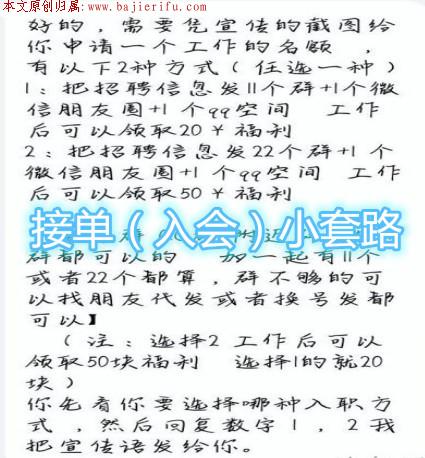 本文原创归八戒日付 www.bajierifu.com
好的，需要凭宣传的截图给
你申请一个工作的名额，
有以下2种方式（任选一种）
1：把招聘信息发11个群+1个微
信朋友圈+1个qq空间 工作
后可以领取20￥福利
2：把招聘信息发22个群+1个
微信朋友圈+1个qq空间 工作
后可以领取50￥福利
接单（入会）小套路
群都可以的 加一起有11个
或者22个都算，群不够的可
以找朋友代发或者换号发都
可以】
（注：选择2 工作后可以
领取50块福利 选择1的就20
块）
你先看你要选择哪种入职方
式，然后回复数字1，2我
把宣传语发给你。